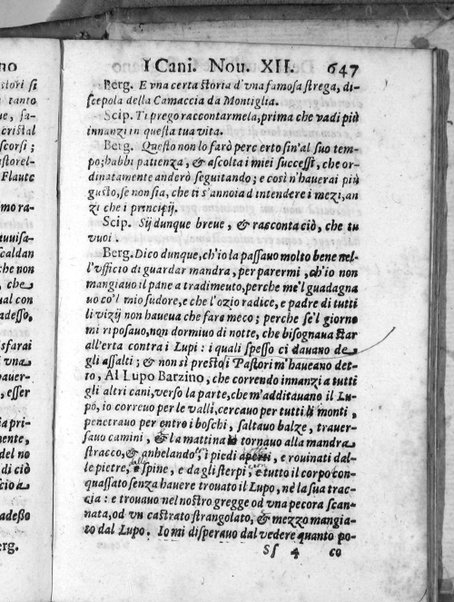 no
I Cani. Nou. XII. 647
Berg. E vna certa storia d'vna famosa strega, di-
scepola della Camaccia da Montiglia.
Scip. Ti prego raccontarmela, prima che vadi più
innanzi in questa tua vita.
Berg. Questo non lo farò per certo sin'al suo tem-
po; habbi patienza, & ascolta i miei successi, che or-
dinatamente anderò seguitando; e così n'hauerai più
gusto, se non sia, che ti s'annoia d'intendere i mezi, an
zi che i principij.
Scip. Sij dunque breue, & racconta ciò, che tu
vuoi.
Berg. Dico dunque, ch'io la passauo molto bene nel-
l'vfficio di guardar mandra, per parermi, ch'io non
mangiauo il pane a tradimeuto, perche me'l guadagna
uo co'l mio sudore, e che l'ozio radice, e padre di tutti
li vizij non haueua che far e meco; perche se'l giorno
mi riposauo, non dormiuo di notte, che bisognaua star
all'erta contra i Lupi: i quali spesso ci dauano de-
gli assalti; & non sì presto i Pastori m'haueano det-
to, Al Lupo Barzino, che correndo innanzi a tutti
gli altri cani, verso la parte, che m'additauano il Lu-
po, io correuo per le valli, cercauo per tutti li monti,
penetrauo per entro i boschi, saltauo balze, trauer-
sauo camini, & la mattina io tornauo alla mandra
stracco, & anhelando, i piedi aperti, e rouinati dal-
le pietre, e spine, e dagli sterpi, e tutto il corpo con-
quassato senza hauere trouato il Lupo, nè la sua trac-
cia: e trouauo nel nostro gregge od vna pecora scan-
nata, od vn castrato strangolato, & mezzo mangia-
to dal Lupo. Io mi disperauo dal vedere quanto po-
Ss 4 co
tori si
tanto
que, sa
cristal
scorsi;
astorel-
Flaute
imora-
tuuisa-
scaldan
che non
, che
ual con
adesso.
cia di
i vna
hauer-
, esser
a pri-
mente,
del no
di ciò
est
adesso
erg.